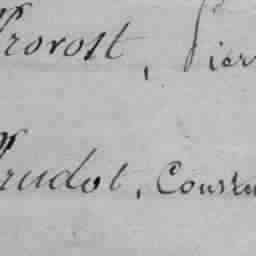 Provost, Pier
Prudot, Constan